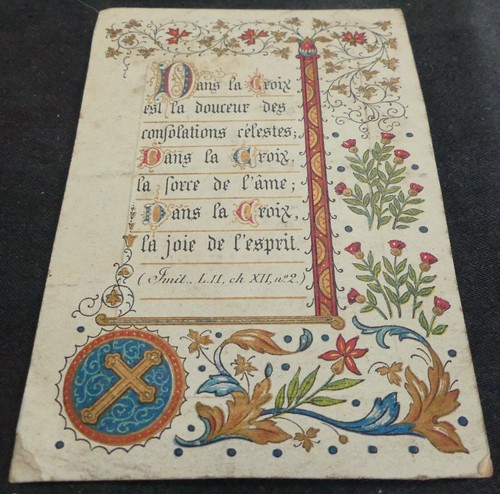 Dans la Croix
est la douceur des
consolations célestes;
Dans la Croix,
la force de l'âme;
Dans la Croix,
la joie de l'esprit.
(Imit., L.II, ch. XII, nº 2.)